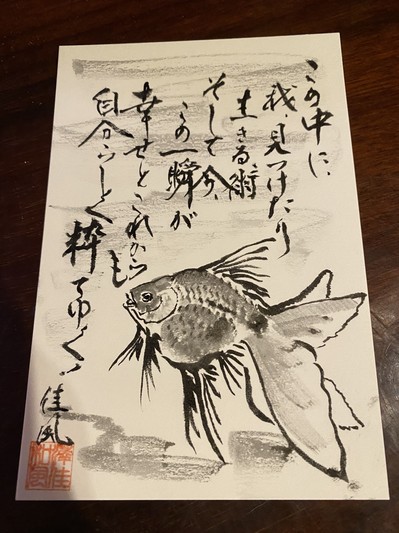 この中に、
我、見つけたり
生きる術
そして今、
この一瞬が
幸せとこれからも
自分らしく粋てゆく
佳風